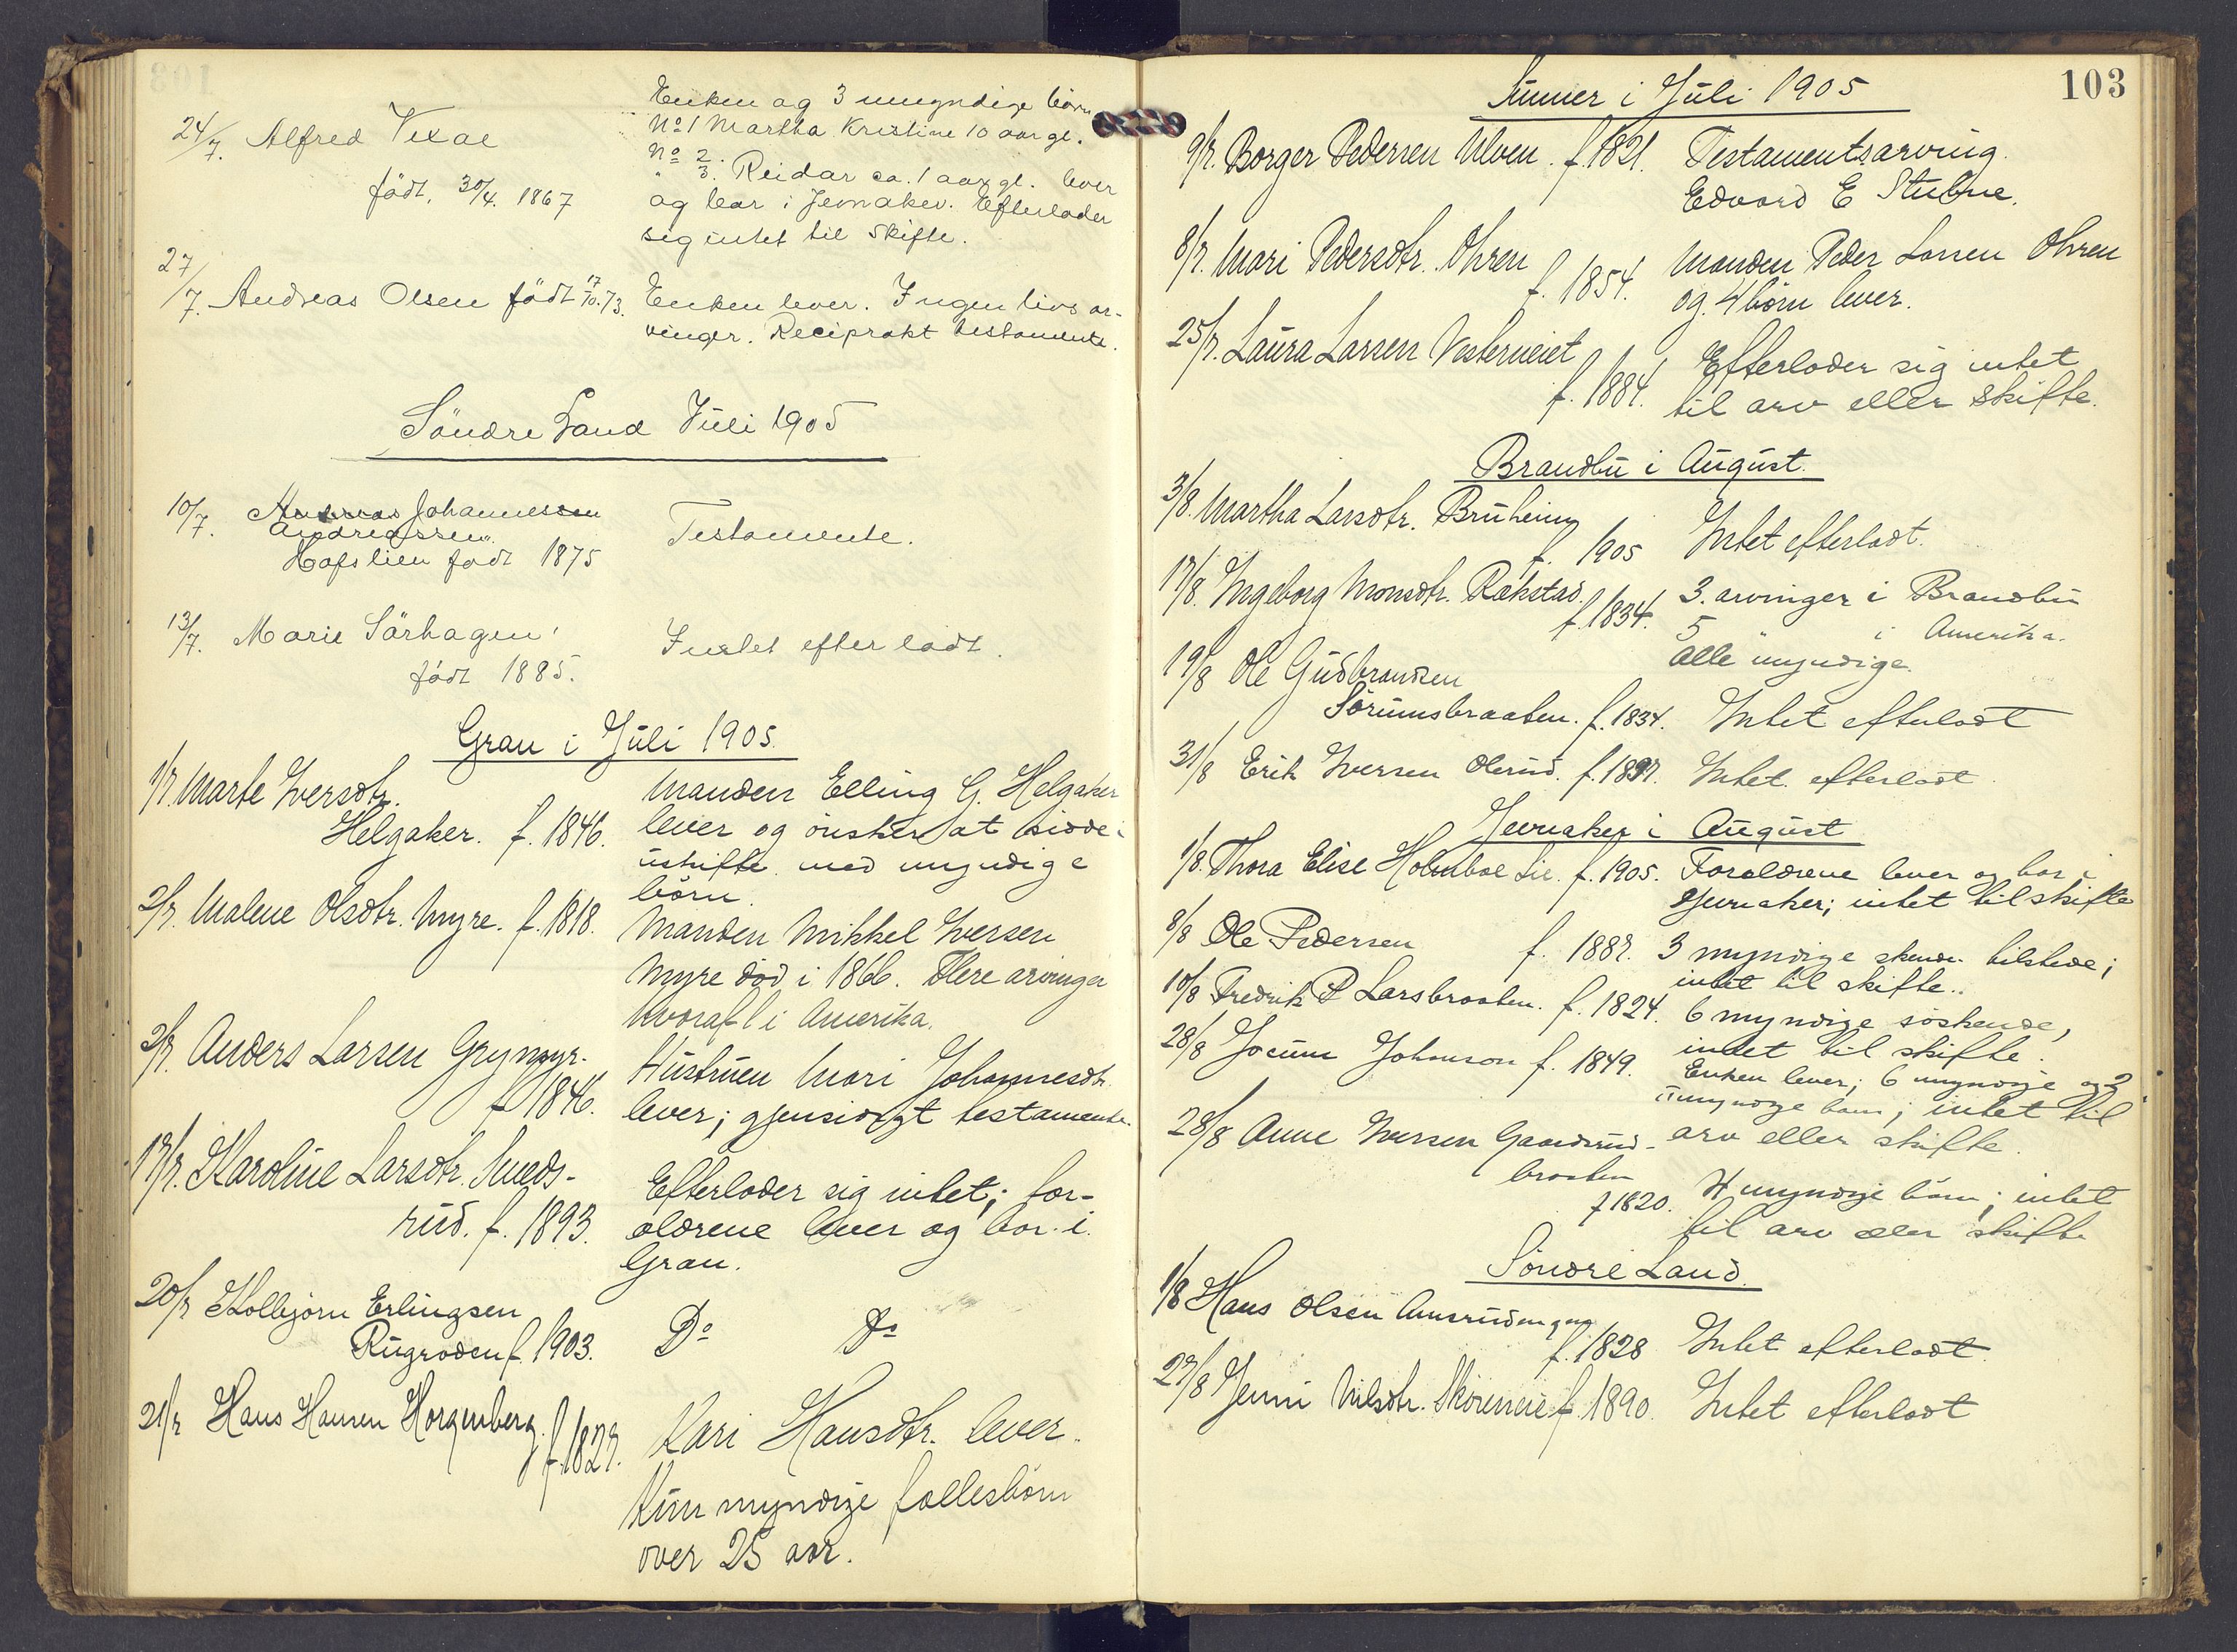 24/7. Alfred Vexal
födt. 30/4. 1867
Enken og 3 umyndige börn
No 1 Martha Kristine 10 aar gl.
No 2.
" 3. Reidar ca. 1 aar gl. lever
og bor i Jevnaker. Efterlader
sig intet til skifte.
27/7. Andreas Olsen födt 17/10.73.
Enken lever. Ingen livsar-
vinger. Reciprokt testamente.
Söndre Land Juli 1905
10/7. Andreas Johannessen
Andreassen
Hofslien födt 1875
Testamente.
13/7. Marie Sörhagen
födt 1885.
Intet efterladt.
Gran i Juli 1905.
1/7. Marte Iversdtr.
Helgaker. f. 1846.
Manden Elling G. Helgaker
lever og önsker at sidde i
uskifte med myndige
börn.
2/7. Malene Olsdtr. Myre. f. 1818.
Manden Mikkel Iversen
Myre död i 1866. Flere arvinger
hvoraf 1 i Amerika.
2/7. Anders Larsen Grynmyr.
f. 1846.
Hustruen Mari Johannesdtr.
lever; gjensidigt testamente.
17/7. Karoline Larsdtr. Smeds-
rud. f. 1893.
Efterlader sig intet; for-
ældrene lever og bor i
Gran.
20/7 Kolbjörn Erlingsen
Rugroden f. 1903.
Do Do
21/7 Hans Hansen Horgenberg.
f. 1827.
Kari Hansdtr. lever.
Kun myndige fællesbörn
over 25 aar.
103
Lunner i Juli 1905
9/7. Borger Pedersen Ulven. f. 1821.
Testamentsarving.
Edvard E Stubne.
8/7. Mari Pedersdtr. Ohren
f. 1854.
Manden Peder Larsen Ohren
og 4 börn lever.
25/7. Laura Larsen Vestereiet
f. 1884.
Efterlader sig intet
til arv eller skifte.
Brandbu i August.
3/8. Martha Larsdtr. Bruheim
f. 1905
Intet efterladt.
17/8. Ingeborg Monsdtr. Rækstad.
f. 1834.
3. arvinger i Brandbu
5 " i Amerika.
Alle myndige.
19/8 Ole Gudbrandsen
Sörumsbraaten. f. 1834.
Intet efterladt
31/8 Erik Iversen Olerud. f. 1897.
Intet efterladt
Jevnaker i August
1/8. Thora Elise Holmboe Lie. f. 1905.
Forældrene lever og bor i
Jevnaker; intet til skifte
8/8 Ole Pedersen f. 1887.
3 myndige skende tilstede;
intet til skifte..
10/8 Fredrik P Larsbraaten. f. 1824.
6 myndige söskende,
intet til skifte.
28/8 Jocum Johnson f. 1849.
Enken lever; 6 myndige og 2
umyndige barn; intet til
arv eller skifte.
28/8 Anne Iversen Gaardsrud-
braaten
f 1820.
4 myndige barn; intet
til arv eller skifte
Söndre Land.
1/8 Hans Olsen Amsrudengen
f. 1828
Intet efterladt.
27/8 Jenni Nilsdtr. f. 1890.
Intet efterladt